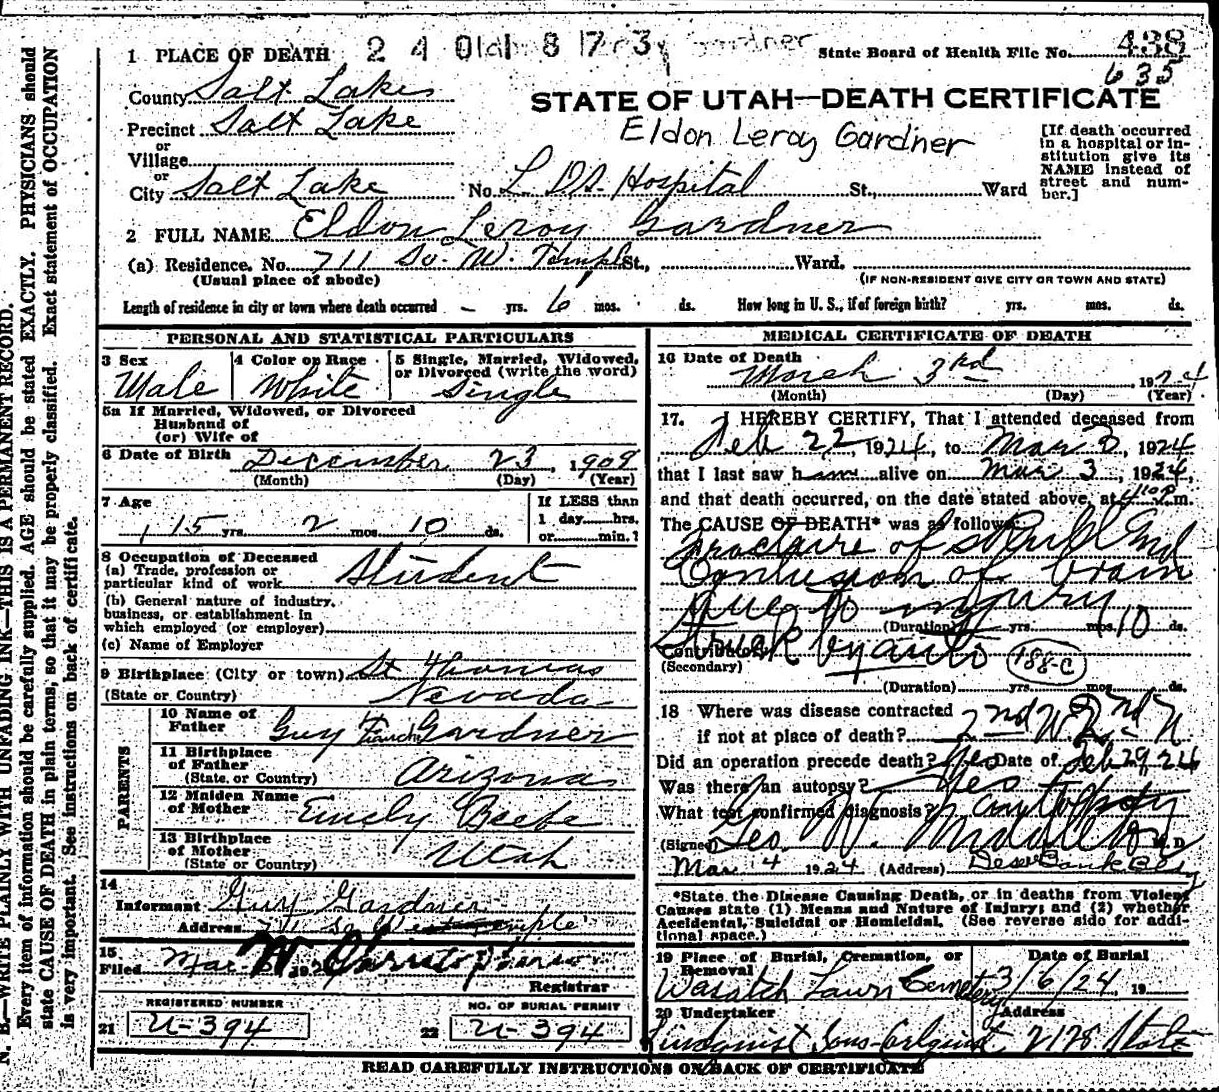 N. B.—WRITE PLAINLY WITH UNFADING INK—THIS IS A PERMANENT RECORD.
Every item of information should be carefully supplied. AGE should be stated EXACTLY. PHYSICIANS should
state CAUSE OF DEATH in plain terms, so that it may be properly classified. Exact statement of OCCUPATION
is very important. See instructions on back of certificate.
State Board of Health File No. 438
635
1 PLACE OF DEATH
County Salt Lake
STATE OF UTAH—DEATH CERTIFICATE
Precinct Salt Lake
Eldon Leroy Gardner
or
Village
or
City Salt Lake No. L D S. Hospital St., Ward
[If death occurred
in a hospital or in-
stitution give its
NAME instead of
street and num-
ber.]
2 FULL NAME Eldon Leroy Gardner
(a) Residence. No. 711 So. W. Temple St., Ward.
(Usual place of abode) (IF NON-RESIDENT GIVE CITY OR TOWN AND STATE)
Length of residence in city or town where death occurred – yrs. 6 mos. ds. How long in U. S., if of foreign birth? yrs. mos. ds.
PERSONAL AND STATISTICAL PARTICULARS
3 Sex
Male
4 Color or Race
White
5 Single, Married, Widowed,
or Divorced (write the word)
Single
5a If Married, Widowed, or Divorced
Husband of
(or) Wife of
6 Date of Birth December 23, 1908
(Month) (Day) (Year)
7 Age
15 yrs. 2 mos. 10 ds.
If LESS than
1 day......hrs.
or......min.?
8 Occupation of Deceased
(a) Trade, profession or
particular kind of work Student
(b) General nature of industry,
business, or establishment in
which employed (or employer)
(c) Name of Employer
9 Birthplace (City or town) St Thomas
(State or Country) Nevada
PARENTS
10 Name of
Father Guy Gardner
11 Birthplace
of Father
(State or Country) Arizona
12 Maiden Name
of Mother Emily Beebe
13 Birthplace
of Mother
(State or Country) Utah
14
Informant Guy Gardner
Address 711 So West Temple
15
Filed Mar
Registrar
REGISTERED NUMBER
21 U-394
NO. OF BURIAL PERMIT
22 U-394
MEDICAL CERTIFICATE OF DEATH
16 Date of Death
March 3rd, 1924
(Month) (Day) (Year)
17. I HEREBY CERTIFY, That I attended deceased from
Feb 22, 1924, to Mar 3, 1924
that I last saw him alive on Mar 3, 1924,
and that death occurred, on the date stated above, at m.
The CAUSE OF DEATH* was as follows:
Fracture of skull and
Contusion of brain
due to injury
(Duration) yrs. mos. 10 ds.
Struck by auto 188-c
Contributory
(Secondary)
(Duration) yrs. mos. ds.
18 Where was disease contracted
if not at place of death? 2nd W. 2nd N
Did an operation precede death? Yes Date of Feb 29, 24
Was there an autopsy? Yes
What test confirmed diagnosis? autopsy
(Signed) Geo. W. Middleton M.D
Mar 4 1924 (Address) Deseret Bank Bldg
*State the Disease Causing Death, or in deaths from Violent
Causes state (1) Means and Nature of Injury; and (2) whether
Accidental, Suicidal or Homicidal. (See reverse side for addi-
tional space.)
19 Place of Burial, Cremation, or
Removal
Date of Burial
Wasatch Lawn Cemetery 3/6/24, 19
20 Undertaker Address
Sons 2128 State
READ CAREFULLY INSTRUCTIONS ON BACK OF CERTIFICATE